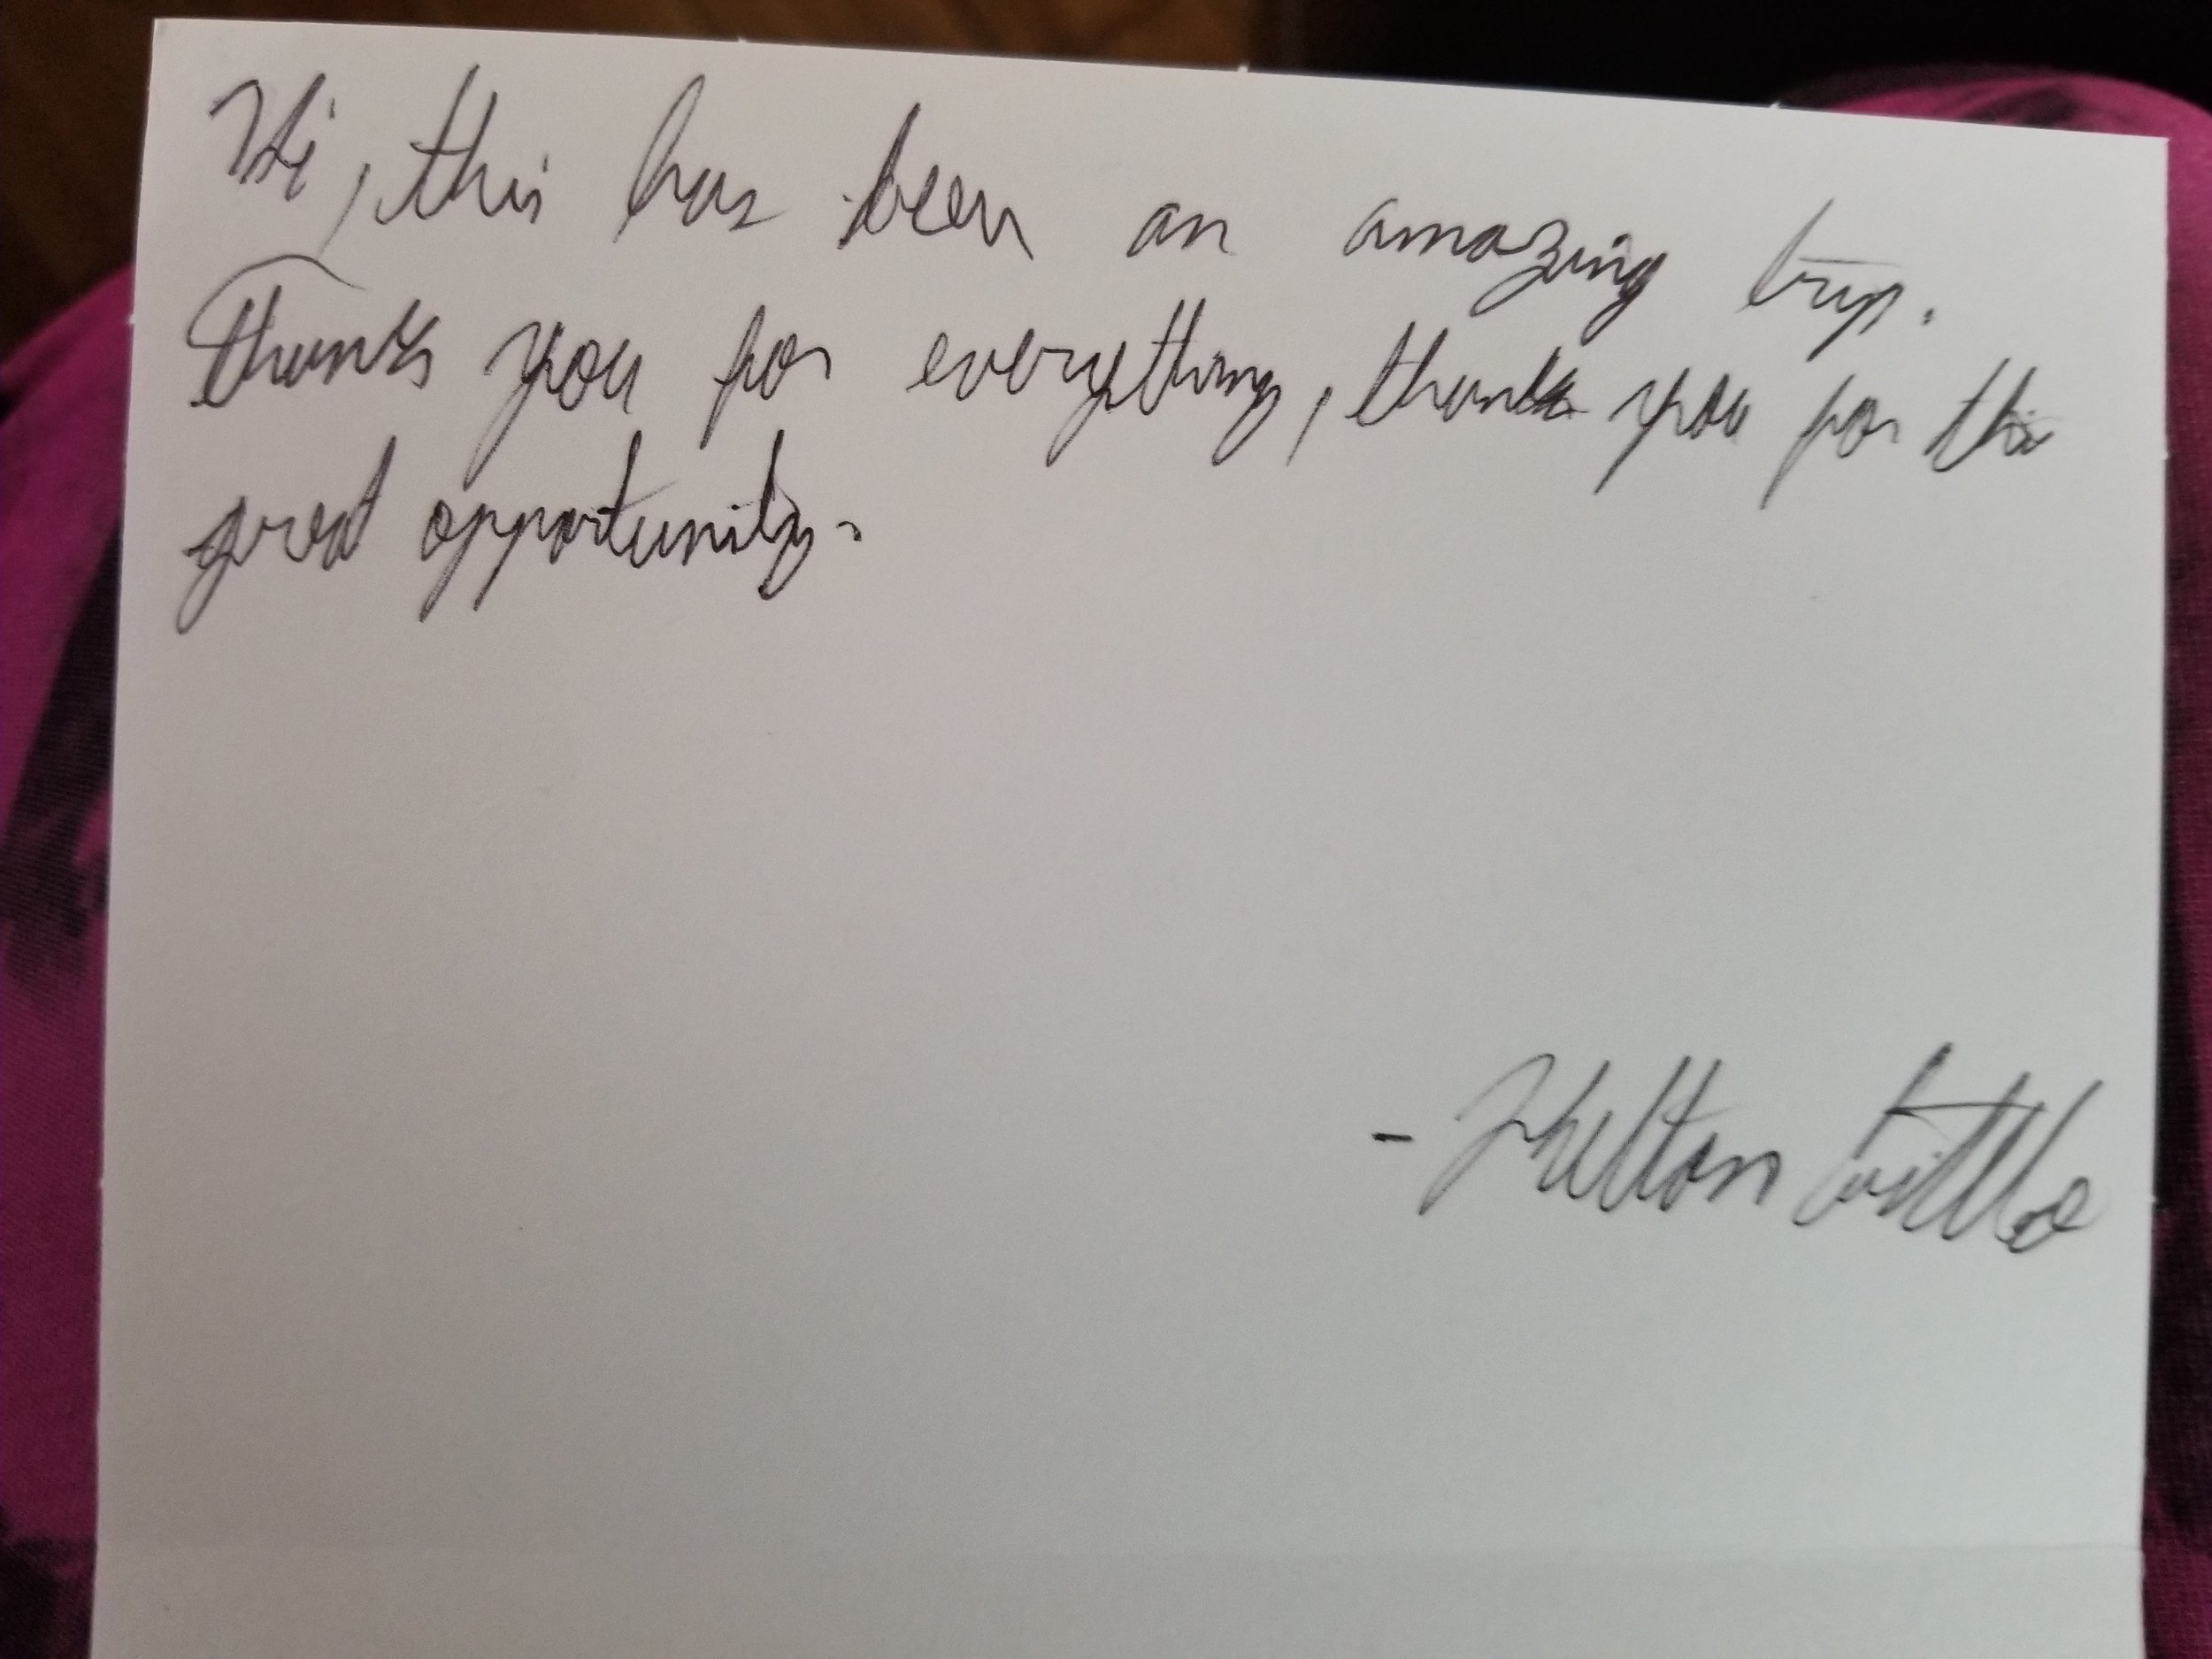 Hi, this has been an amazing trip.
Thanks you for everything, thank you for this
great opportunity.
-